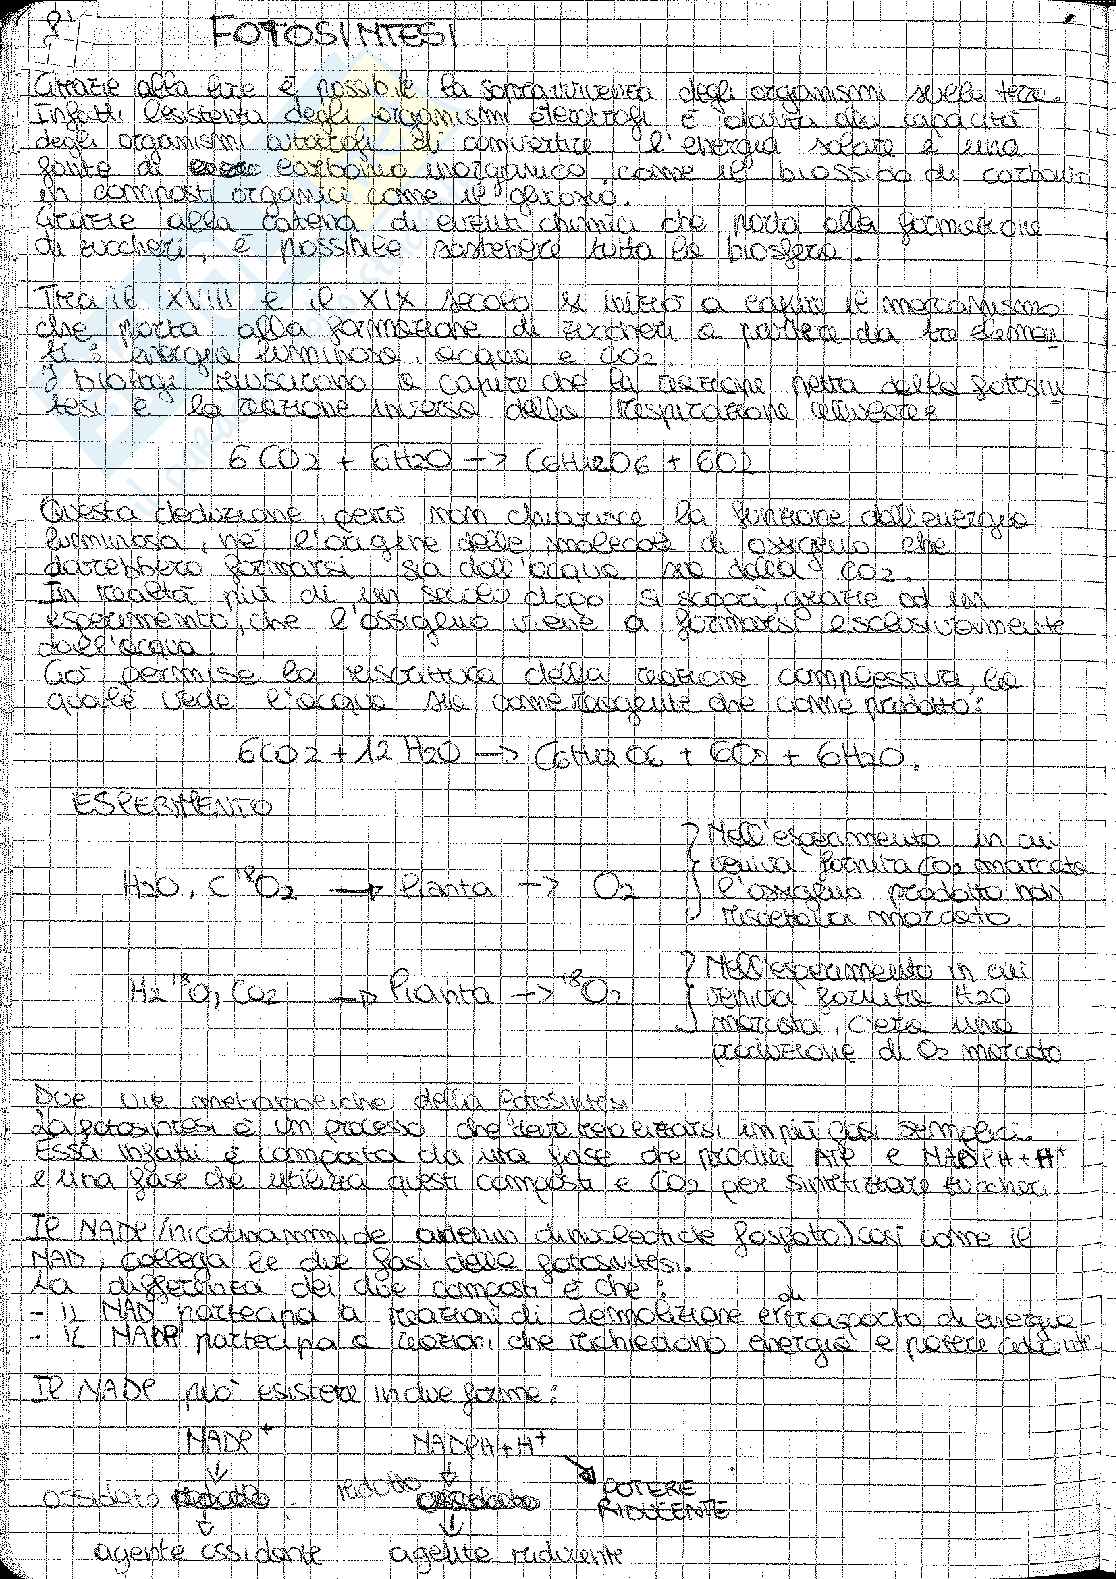 FOTOSINTESI
Grazie alla luce è possibile la sopravvivenza degli organismi sulla terra.
Infatti l'esistenza degli organismi eterotrofi è dovuta alla capacità
degli organismi autotrofi di convertire l'energia solare e una
fonte di carbonio inorganico come il biossido di carbonio
in composti organici come il glucosio.
Grazie alla catena di eventi chimici che porta alla formazione
di zuccheri, è possibile sostenere tutta la biosfera.
Tra il XVIII e il XIX secolo si iniziò a capire il meccanismo
che porta alla formazione di zuccheri a partire da tre elemen
ti: energia luminosa, acqua e CO2.
I biologi riuscirono a capire che la reazione netta della fotosin
tesi è la reazione inversa della respirazione cellulare:
6CO2 + 6H2O -> C6H12O6 + 6O2
Questa deduzione però non chiarisce la funzione dell'energia
luminosa, nè l'origine delle molecole di ossigeno che
potrebbero formarsi sia dall'acqua sia dalla CO2.
In realtà più di un secolo dopo si scoprì, grazie ad un
esperimento, che l'ossigeno viene a formarsi esclusivamente
dall'acqua.
Ciò permise la riscrittura della reazione complessiva, la
quale vede l'acqua sia come reagente che come prodotto:
6CO2 + 12H2O -> C6H12O6 + 6O2 + 6H2O.
ESPERIMENTO
Nell'esperimento in cui
veniva fornita CO2 marcata
H2O, C18O2 -> Pianta -> O2 l'ossigeno prodotto non
risultava marcato.
Nell'esperimento in cui
H2 18O, CO2 -> Pianta -> 18O2 veniva fornita H2O
marcata, c'era una
produzione di O2 marcato
Due vie metaboliche della fotosintesi
La fotosintesi è un processo che deve realizzarsi in più fasi semplici.
Essa infatti è composta da una fase che produce ATP e NADPH+H+
e una fase che utilizza questi composti e CO2 per sintetizzare zuccheri.
Il NADP (nicotinammide adenin dinucleotide fosfato) così come il
NAD, collega le due fasi della fotosintesi.
La differenza dei due composti è che:
- il NAD partecipa a reazioni di demolizione e di trasporto di energia
- il NADP partecipa a reazioni che richiedono energia e potere riducente
Il NADP può esistere in due forme:
NADP+ NADPH+H+
ossidato ridotto POTERE
RIDUCENTE
agente ossidante agente riducente